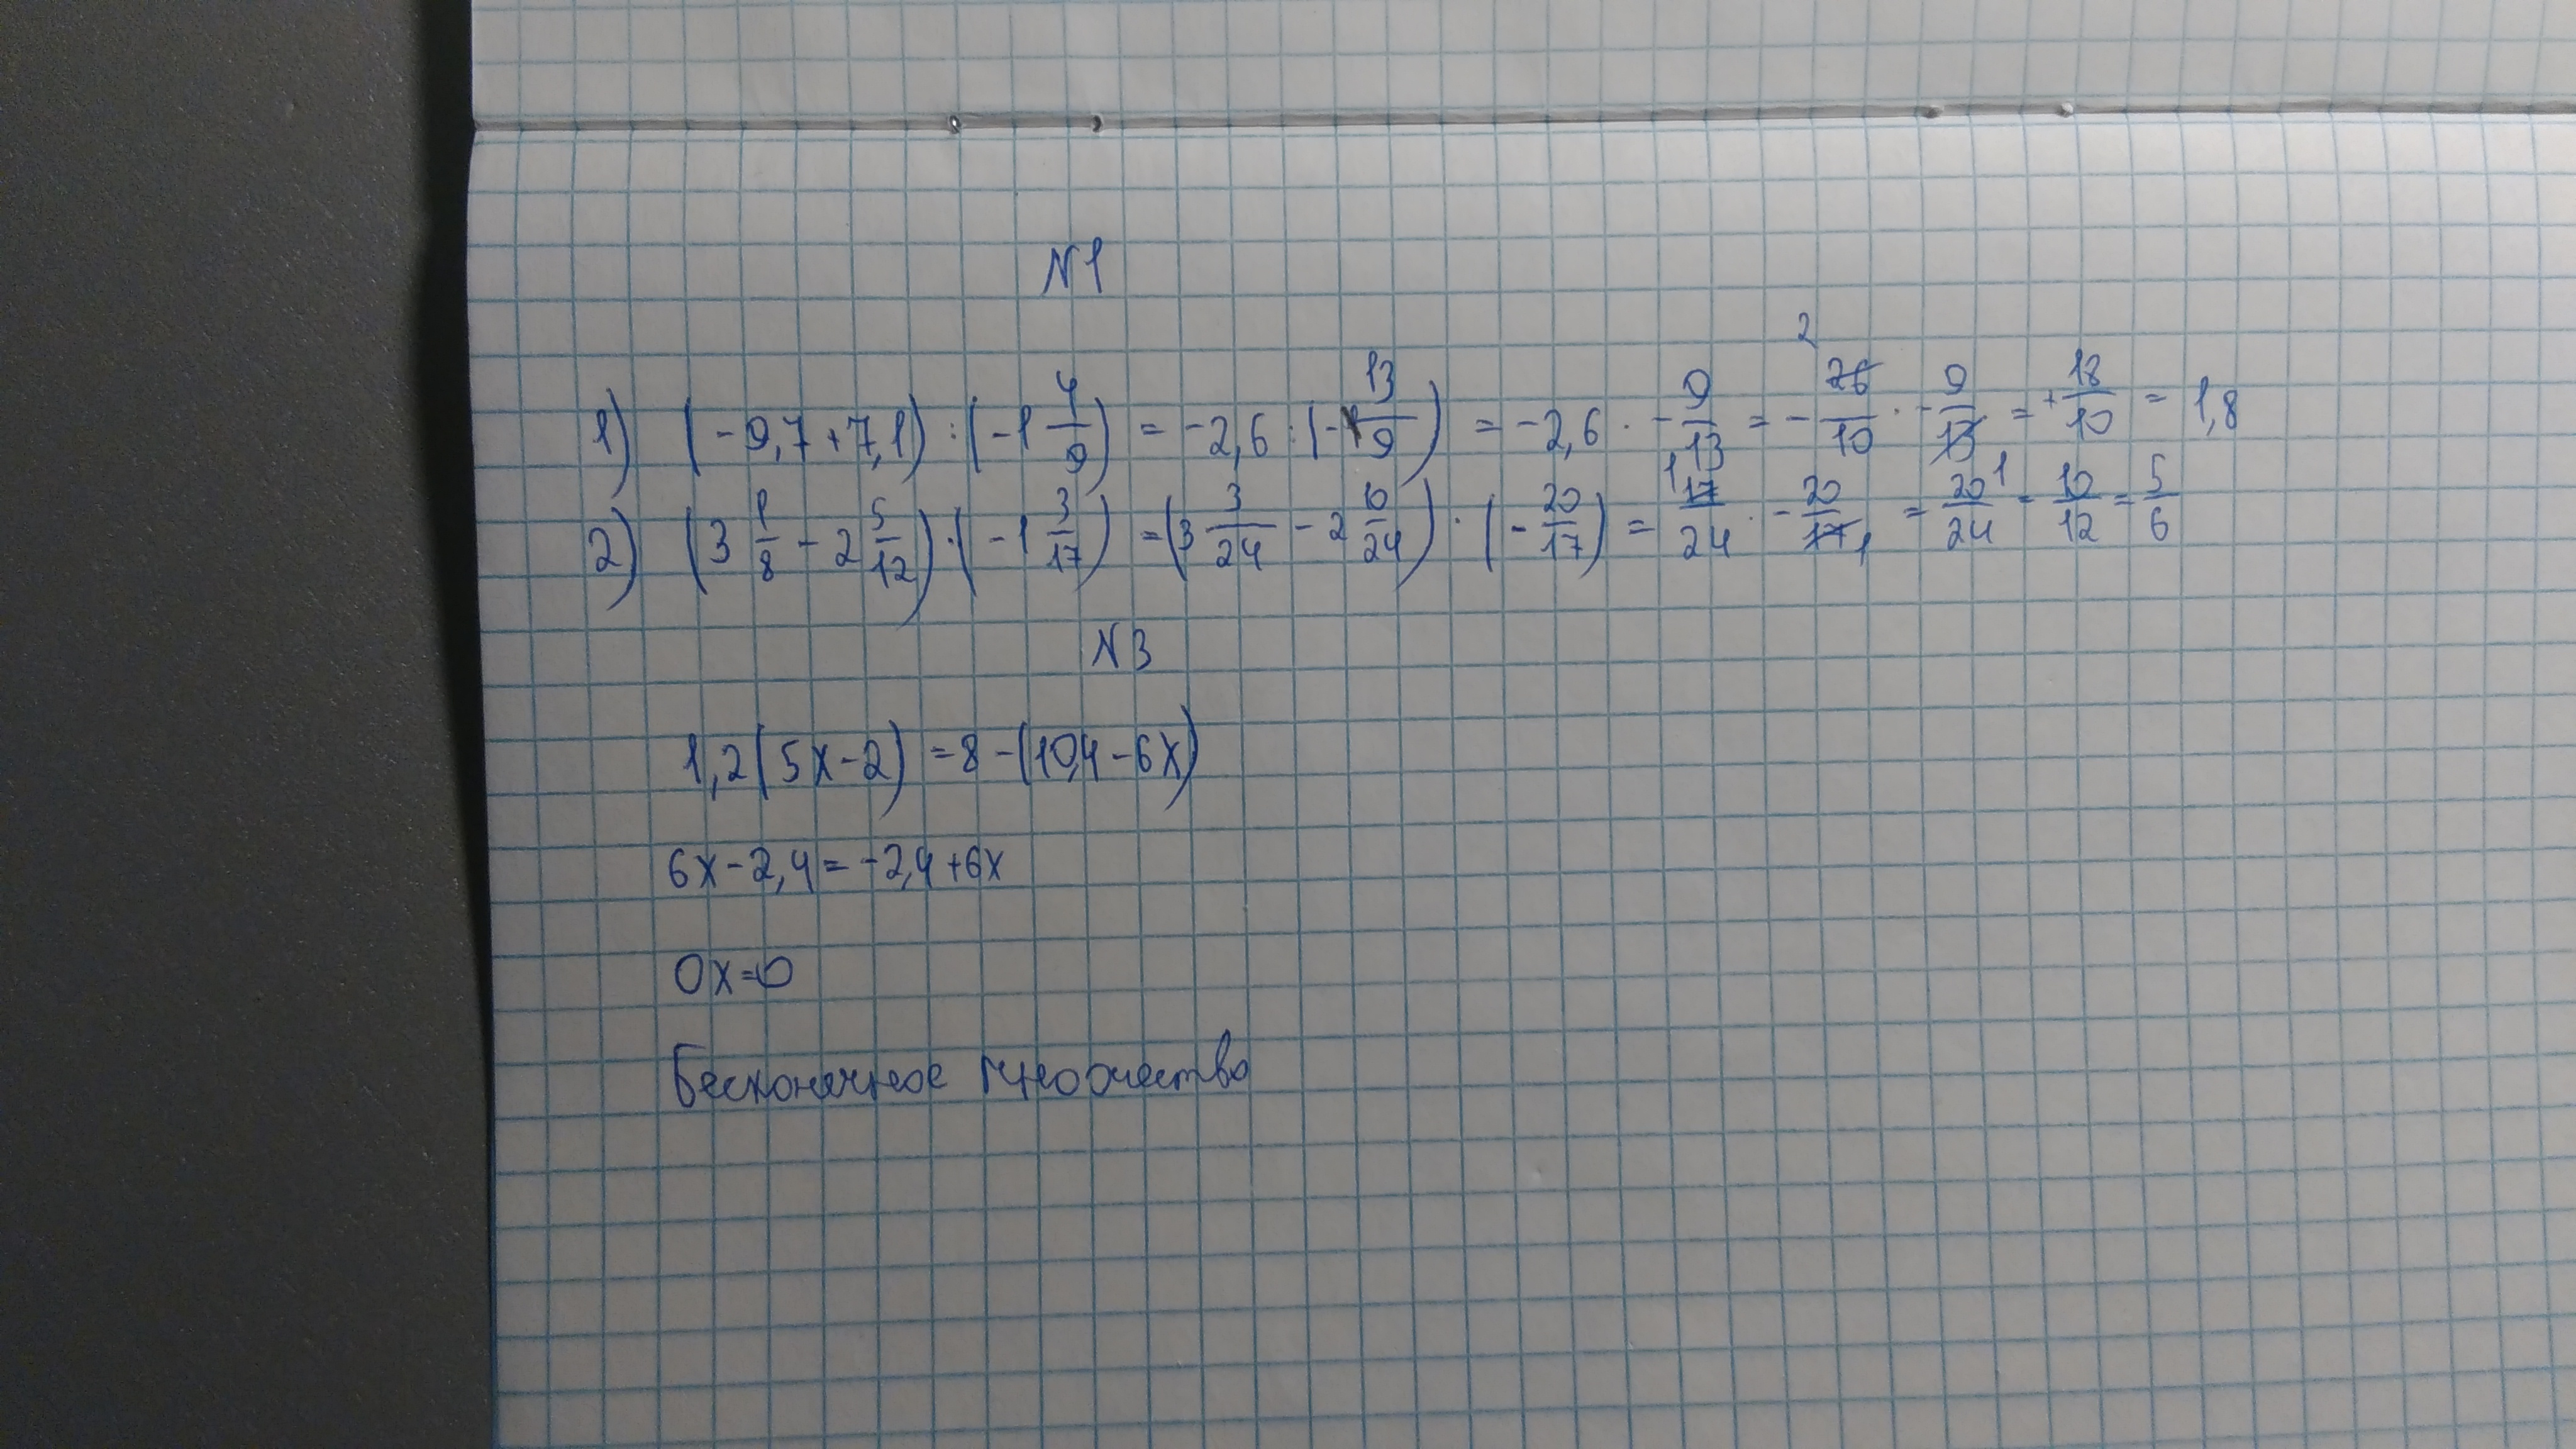 N1
1) (-9,7+7,1):(-1 4/9) = -2,6:(-13/9) = -2,6 · -9/13 = -26/10 · -9/13 = +18/10 = 1,8
2) (3 1/8 - 2 5/12)·(-1 3/17) = (3 3/24 - 2 10/24)·(-20/17) = 17/24 · -20/17 = 20/24 = 10/12 = 5/6
N3
1,2(5x-2)=8-(10,4-6x)
6x-2,4=-2,4+6x
0x=0
Бесконечное множество